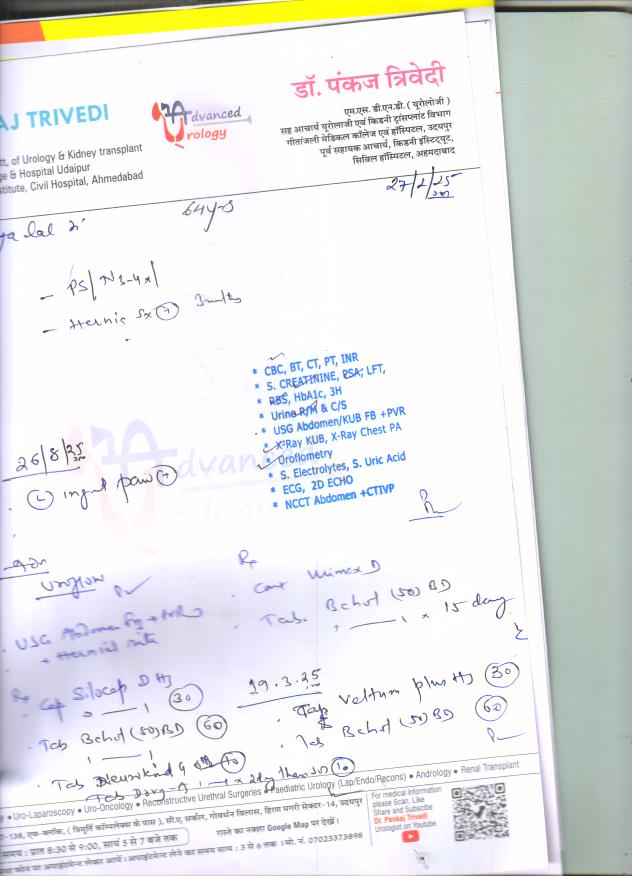 AJ TRIVEDI
Advanced
Urology
डॉ. पंकज त्रिवेदी
एम.एस. डी.एन.बी. ( यूरोलोजी )
सह आचार्य यूरोलाजी एवं किडनी ट्रांसप्लांट विभाग
गीतांजली मेडिकल कॉलेज एवं हॉस्पिटल, उदयपुर
पूर्व सहायक आचार्य, किडनी इंस्टिट्यूट,
सिविल हॉस्पिटल, अहमदाबाद
tt. of Urology & Kidney transplant
ge & Hospital Udaipur
stitute, Civil Hospital, Ahmedabad
27/2/25
lal
64yrs
- PS/
- Hernia Sx (+) 3
* CBC, BT, CT, PT, INR
* S. CREATININE, PSA, LFT,
* RBS, HbA1c, 3H
* Urine R/M & C/S
* USG Abdomen/KUB FB +PVR
* X-Ray KUB, X-Ray Chest PA
* Uroflometry
* S. Electrolytes, S. Uric Acid
* ECG, 2D ECHO
* NCCT Abdomen +CTIVP
26/8/25
(L) pain (+)
Advanced
Urology
Uroflow
USG Abdomen
+ Hernial site
Rx
D
Tab. Bchol (50) BD
x 15 day
Rx
Cap Silocap D HS
(30)
Tab Bchol (50) BD (60)
Tab Neurokind G
19.3.25
Veltum plus HS (30)
Tab Bchol (50) BD (60)
• Uro-Laparoscopy • Uro-Oncology • Reconstructive Urethral Surgeries • Paediatric Urology (Lap/Endo/Recons) • Andrology • Renal Transplant
7-138, एक-ब्लॉक, ( त्रिमूर्ति कॉम्पलेक्स के पास ), सी.ए. सर्कल, गोवर्धन विलास, हिरण मगरी सेक्टर-14, उदयपुर
समय : प्रात 8:30 से 9:00, सायं 5 से 7 बजे तक
रास्ते का नक्शा Google Map पर देखें।
फोन पर अपाईंटमेन्ट लेकर आयें। अपाईंटमेन्ट लेने का समय सायं : 3 से 6 तक । मो. नं. 07023373898
For medical information
please Scan, Like
Share and Subscribe
Dr. Pankaj Trivedi
Urologist on Youtube